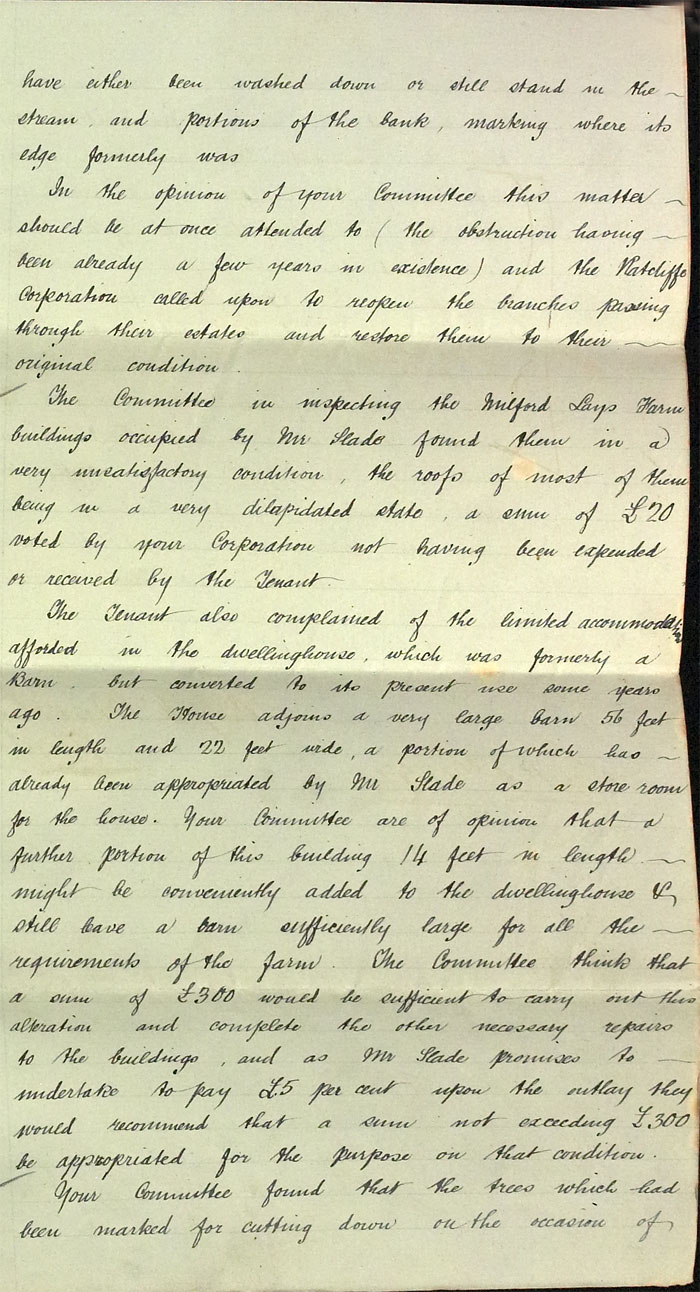 have either been washed down or still stand in the
stream, and portions of the bank, marking where its
edge formerly was
In the opinion of your Committee this matter
should be at once attended to (the obstruction having
been already a few years in existence) and the Ratcliffe
Corporation called upon to reopen the branches passing
through their estates and restore them to their
original condition.
The Committee in inspecting the Milford Lays Farm
buildings occupied by Mr Slade found them in a
very unsatisfactory condition, the roofs of most of them
being in a very dilapidated state, a sum of £20
voted by your Corporation not having been expended
or received by the Tenant.
The Tenant also complained of the limited accommodation
afforded in the dwellinghouse, which was formerly a
Barn, but converted to its present use some years
ago. The House adjoins a very large barn 56 feet
in length and 22 feet wide, a portion of which has
already been appropriated by Mr Slade as a store room
for the house. Your Committee are of opinion that a
further portion of this building 14 feet in length
might be conveniently added to the dwellinghouse &
still leave a barn sufficiently large for all the
requirements of the farm. The Committee think that
a sum of £300 would be sufficient to carry out this
alteration and complete the other necessary repairs
to the buildings, and as Mr Slade promises to
undertake to pay £5 per cent upon the outlay they
would recommend that a sum not exceeding £300
be appropriated for the purpose on that condition.
Your Committee found that the trees which had
been marked for cutting down on the occasion of